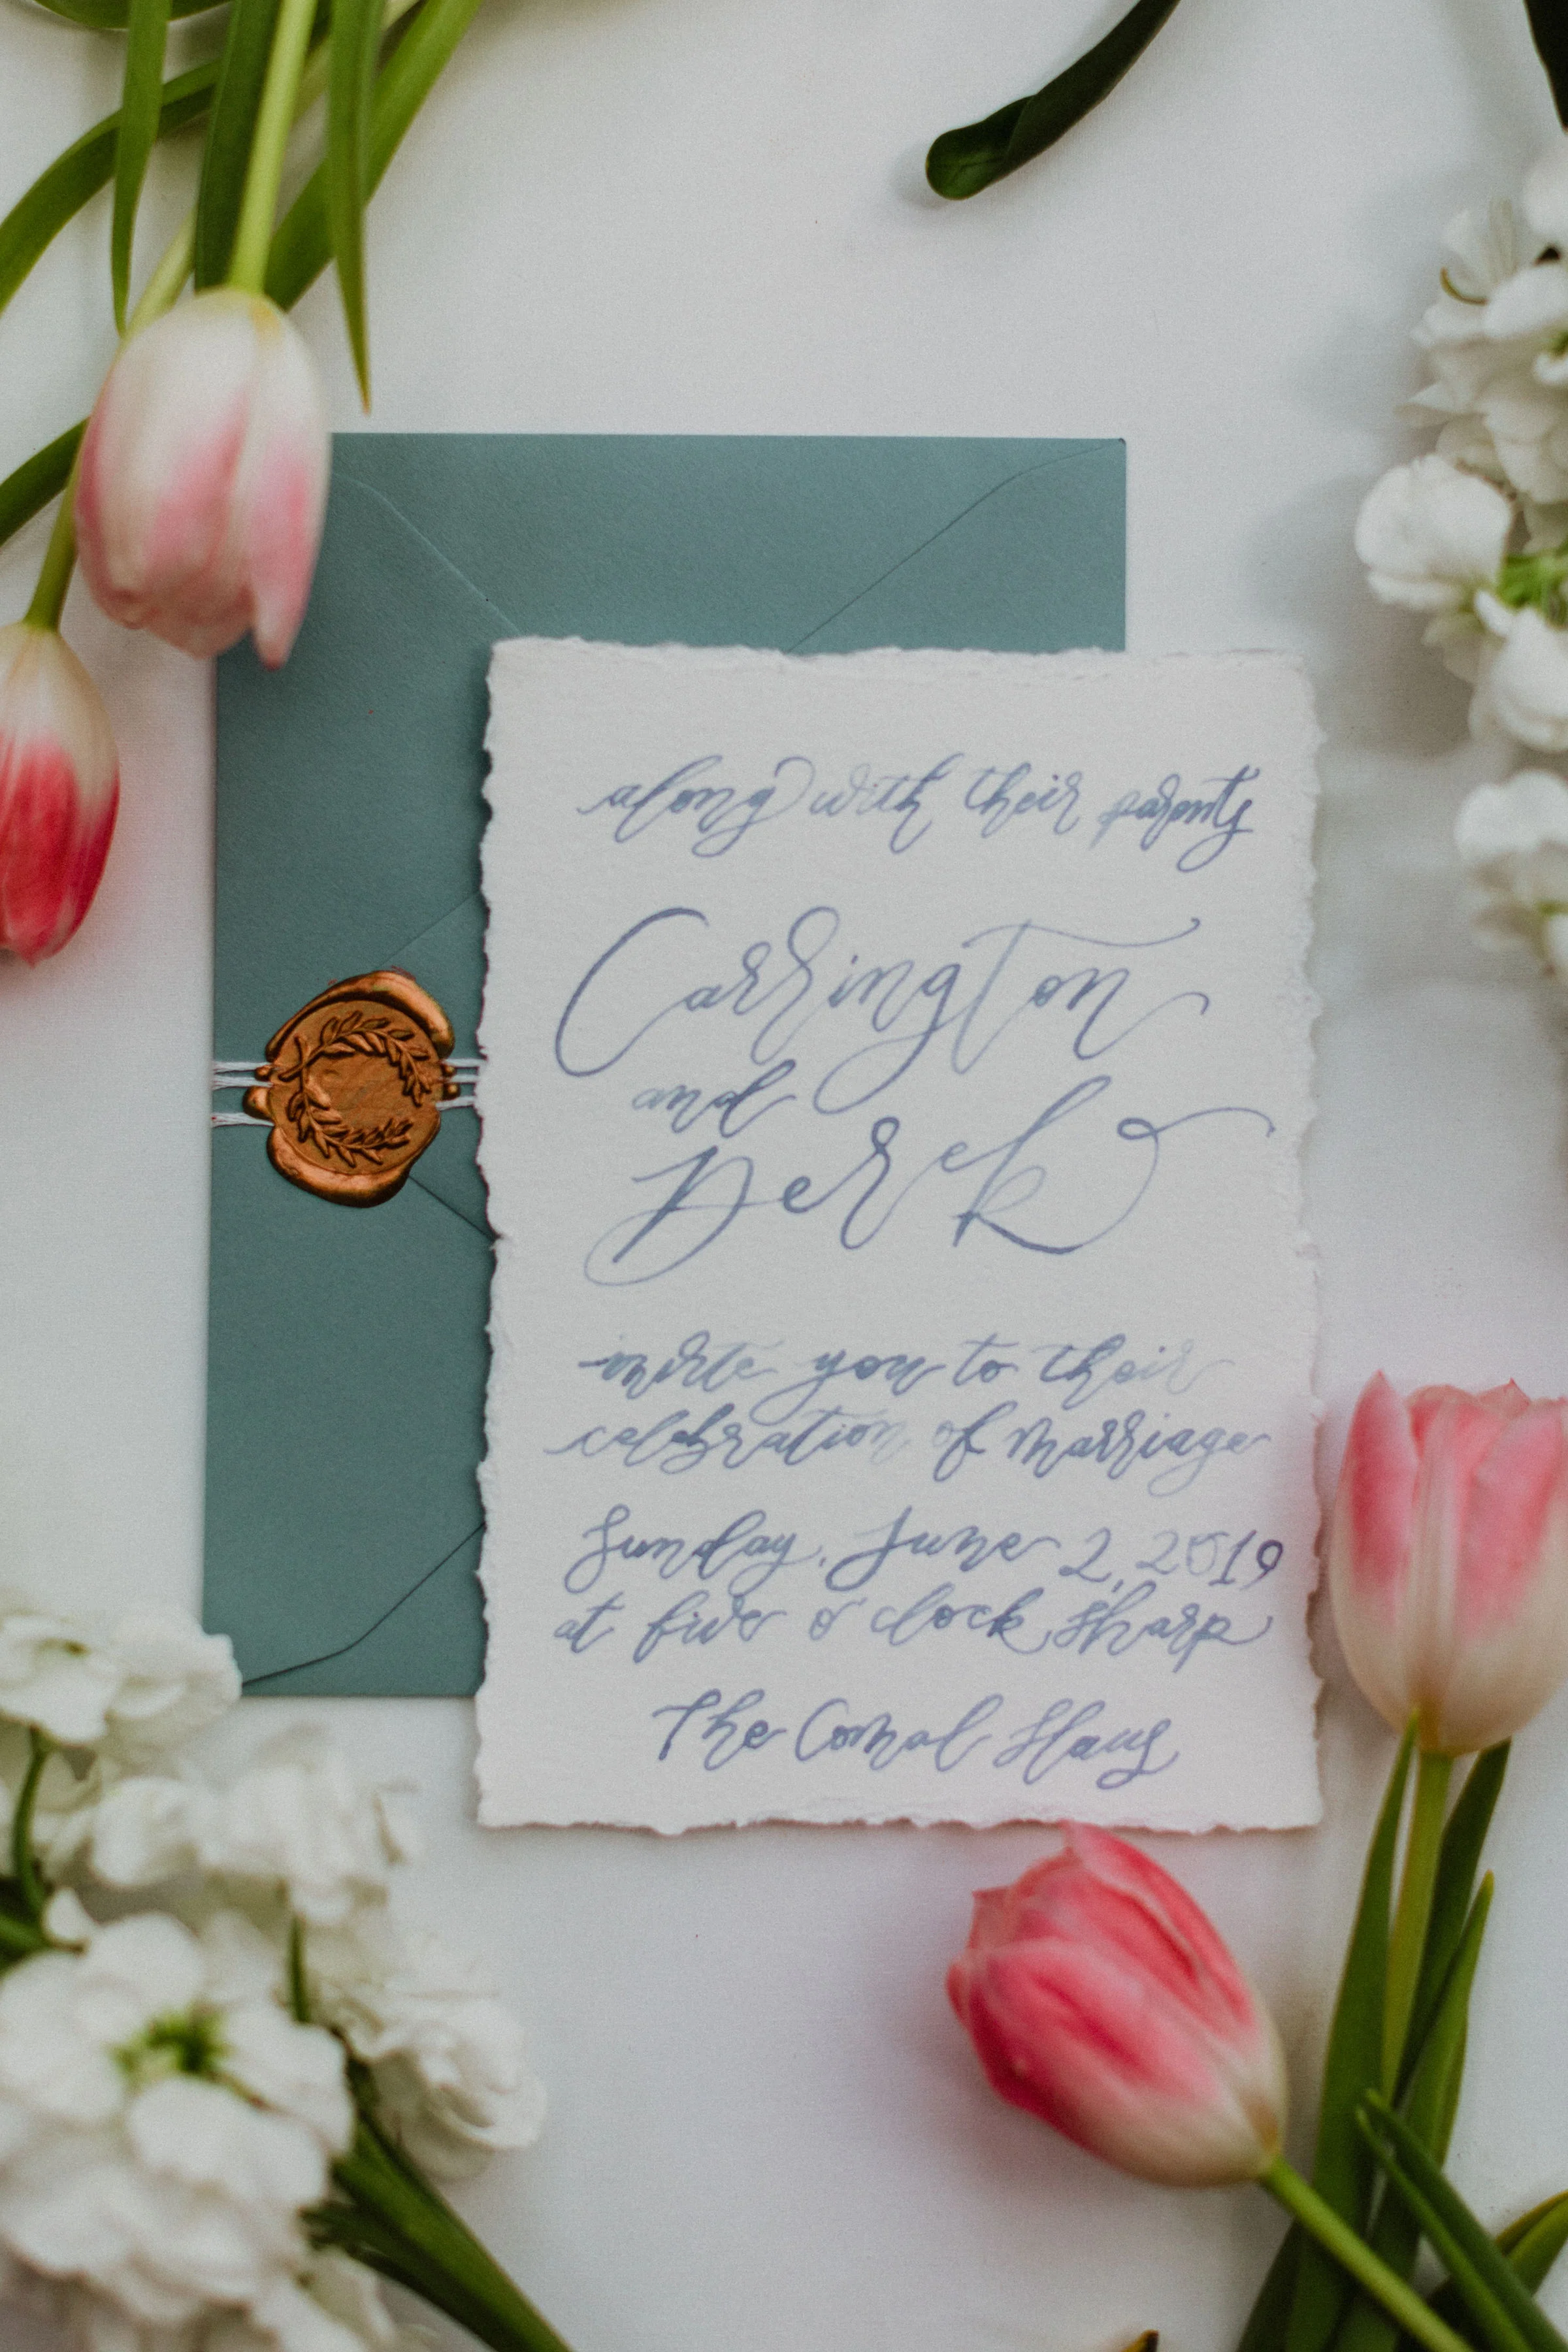 along with their parents
Carrington
and
Derek
invite you to their
celebration of marriage
Sunday, June 2, 2019
at five o'clock sharp
The Comal Haus